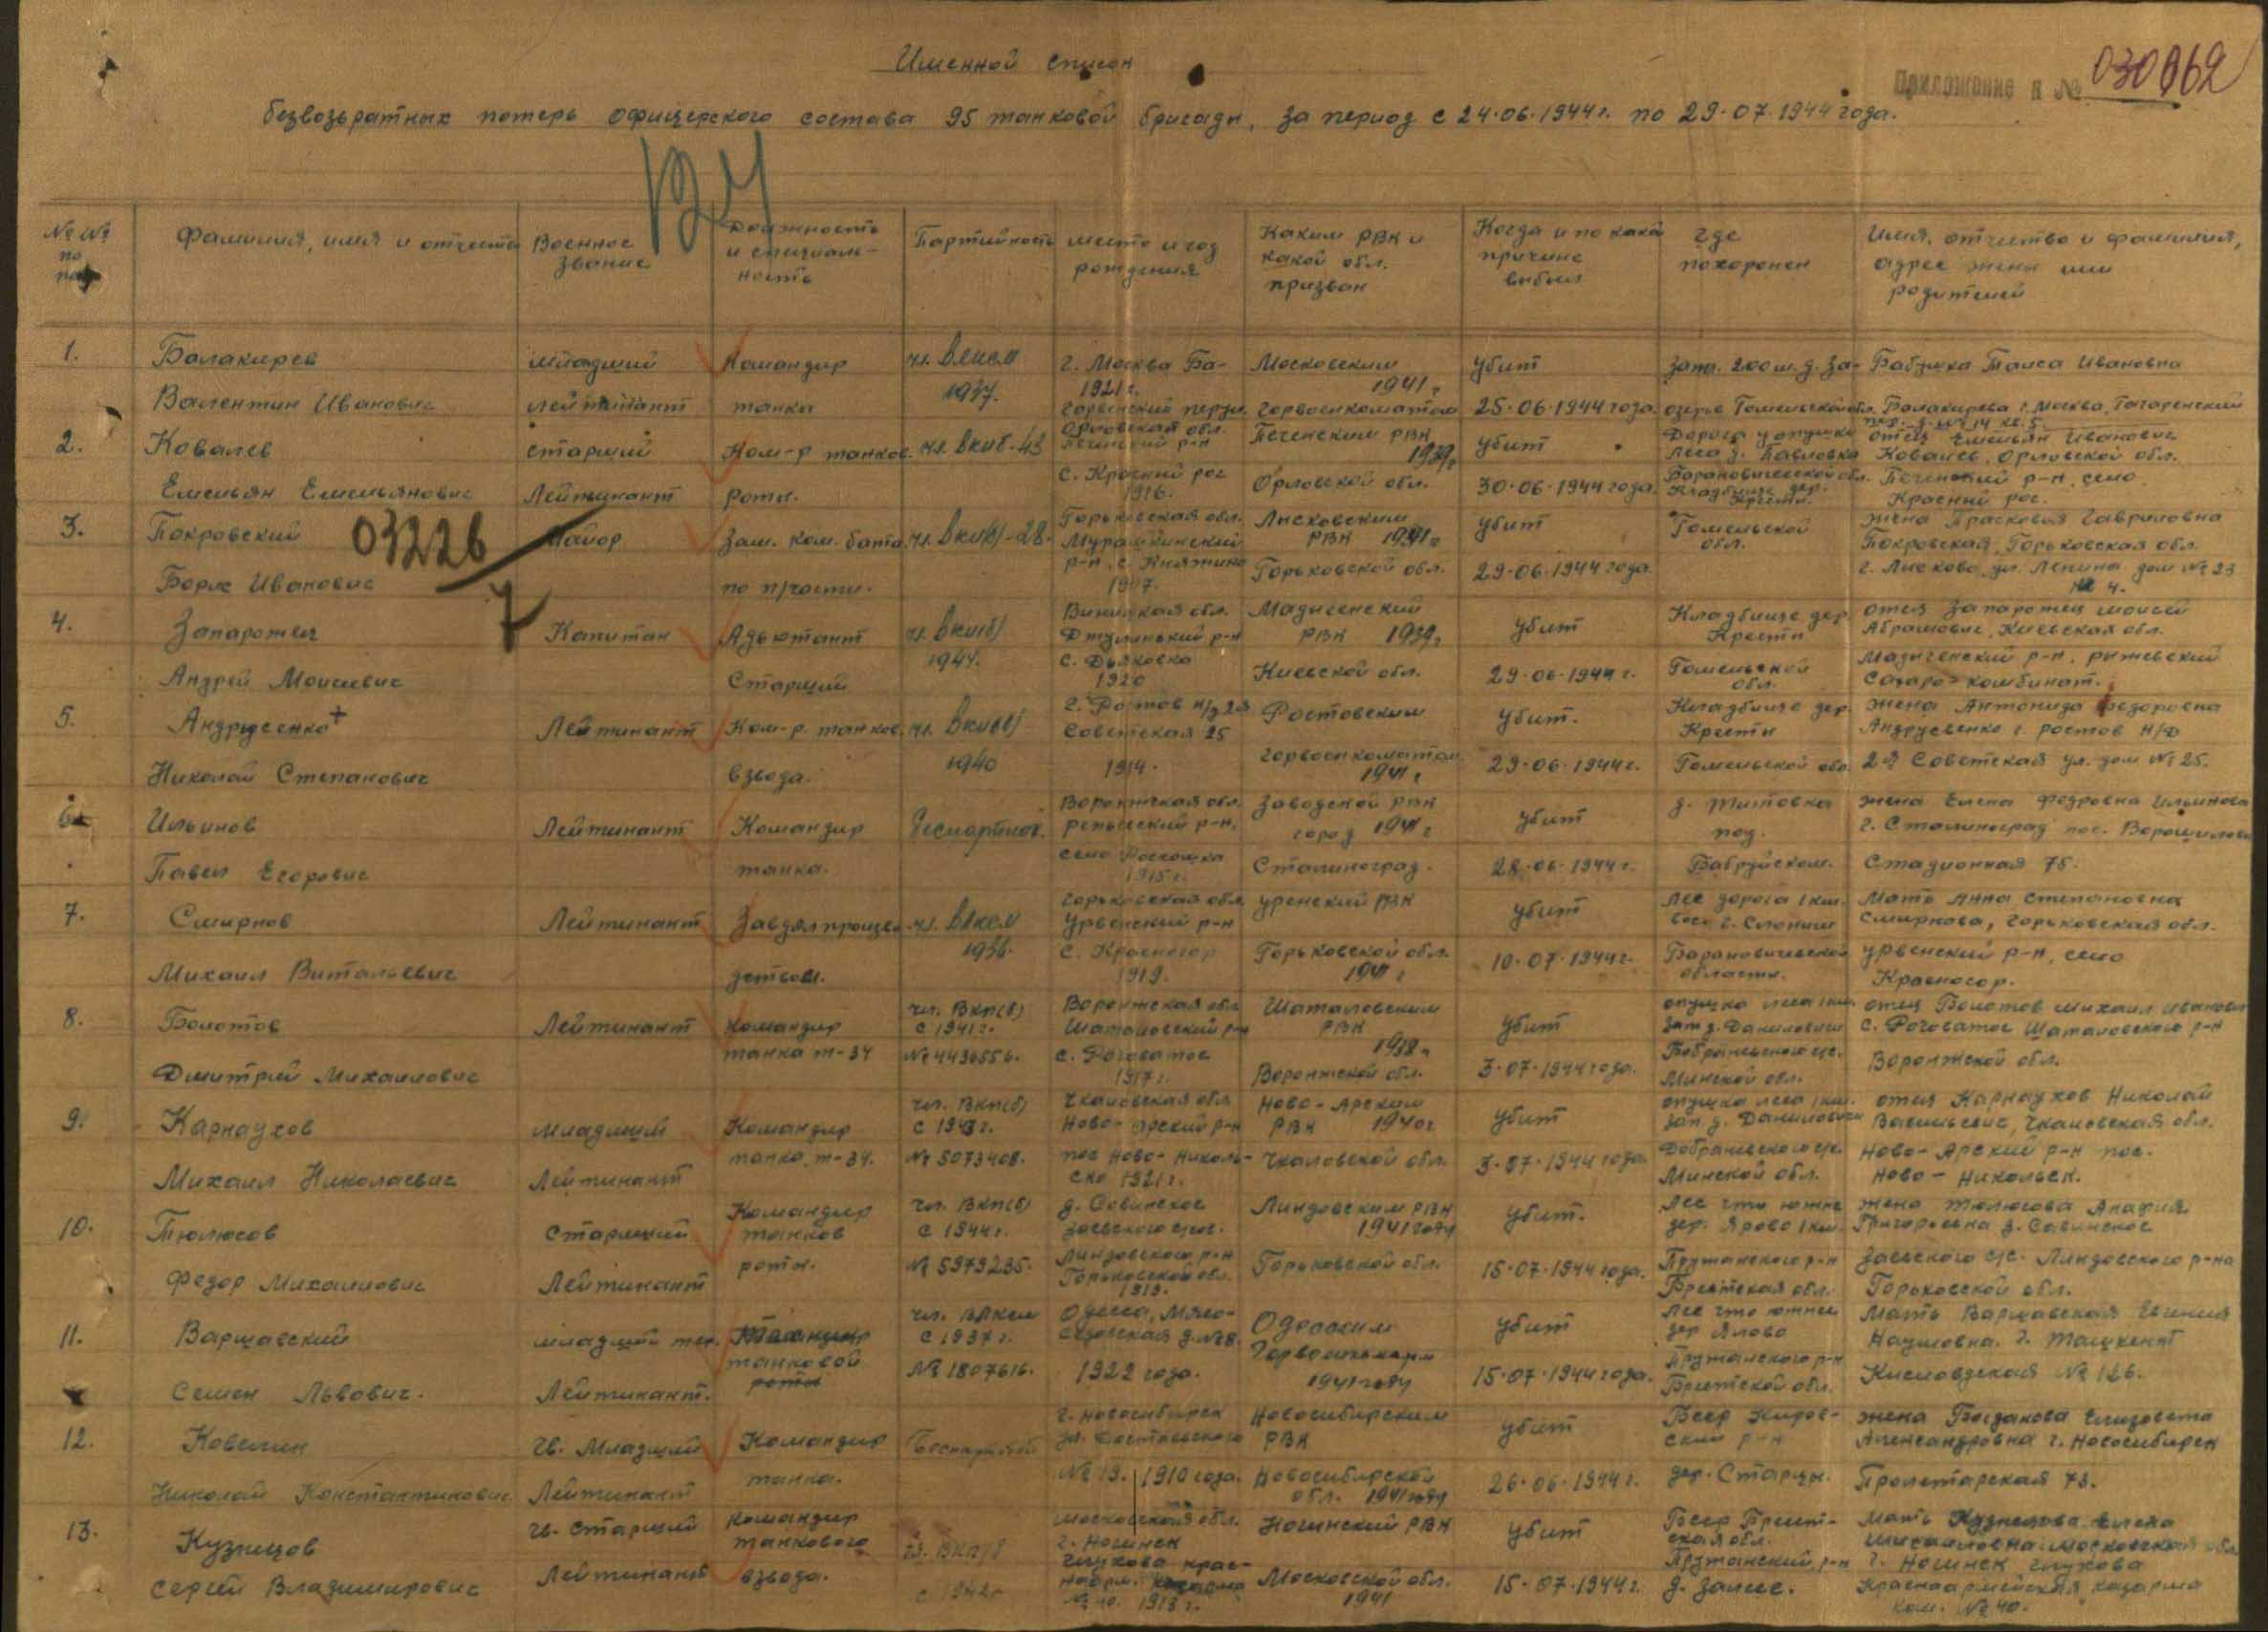 Именной список
Приложение к № 030662
безвозвратных потерь офицерского состава 95 танковой бригады, за период с 24.06.1944г. по 29.07.1944 года.
№ №
по
Фамилия, имя и отчество
Военное
звание
Должность
и специаль-
ность
Партийность
место и год
рождения
Каким РВК и
какой обл.
призван
Когда и по какой
причине
выбыл
где
похоронен
Имя, отчество и фамилия,
адрес жены или
родителей
1.
Балакирев
Валентин Иванович
младший
лейтинант
Командир
танка
чл. ВЛКСМ
1937.
г. Москва Ба-
1921г.
Московским
1941г
горвоенкоматом
убит
25.06.1944 года.
зап. 200 м. д. За-
озерье Гомельской обл.
Бабушка Таиса Ивановна
Балакирева г. Москва,
2.
Ковалев
Емельян Емельянович
старший
Лейтинант
Ком-р танков.
роты.
чл. ВКПб-43
Орловская обл.
с. Красный рог
1916.
РВК
1939г
Орловской обл.
убит
30.06.1944 года.
Дорога у опушки
леса д. Павловка
Барановической обл.
отец Емельян Иванович
Ковалев, Орловской обл.
р-н, село
Красный рог.
3.
Покровский
Борис Иванович
03226
Майор
Зам. ком. бата.
по п/части.
чл. ВКП(б)-28.
Горьковская обл.
Мурашкинский
р-н, с. Княжино
1907.
Лысковским
РВК 1941г
Горьковской обл.
убит
29.06.1944 года.
Кладбище дер.
Кресты.
Гомельской
обл.
жена Прасковия Гавриловна
Покровская, Горьковская обл.
г. Лысково, ул. Ленина дом № 23
4.
4.
Запаротец
Андрей Моисеевич
Капитан
Адъютант
Старший
чл. ВКП(б)
1944.
обл.
р-н
с. Дьяковка
1920
РВК 1939г
Киевской обл.
убит
29.06.1944 г.
Кладбище дер.
Кресты
Гомельской
обл.
отец Запаротец Моисей
Абрамович, Киевская обл.
р-н,
Сахаро-комбинат.
5.
Андрусенко
Николай Степанович
Лейтинант
Ком-р. танков.
взвода.
чл. ВКП(б)
1940
г. Ростов н/д 2я
Советская 25
1914.
Ростовским
горвоенкоматом
1941г
убит.
29.06.1944г.
Кладбище дер.
Кресты
Гомельской обл.
жена Антонида Федоровна
Андрусенко г. Ростов Н/Д
2я Советская ул. дом № 25.
6.
Ильинов
Павел Егорович
Лейтинант
Командир
танка.
Беспартий.
обл.
р-н,
село
1915г.
Заводской РВК
город 1941г
Сталиноград.
убит
28.06.1944 г.
д. Титовка
под.
Бабруйском.
жена Елена Федровна Ильинова
г. Сталиноград пос. Ворошилова
Стадионная 75.
7.
Смирнов
Михаил Витальевич
Лейтинант
Завделпроизво
дством.
чл. ВЛКСМ
1936.
Горьковская обл.
Урвенский р-н
с. Красногор
1919.
Уренский РВК
Горьковской обл.
1941г
убит
10.07.1944г.
лес дорога 1км.
г. Слоним
Барановичевской
области.
Мать Анна Степановна
Смирнова, Горьковская обл.
Урвенский р-н, село
Красногор.
8.
Болотов
Дмитрий Михаилович
Лейтинант
Командир
танка т-34
чл. ВКП(б)
с 1941г.
№ 4436556.
Воронжская обл
Шаталовский р-н
с. Роговатое
1917г.
Шаталовским
РВК
1938г
Воронжской обл.
убит
3.07.1944 года.
опушка леса 1км.
зап д. Даниловичи
Минской обл.
отец Болотов Михаил Иванович
с. Роговатое Шаталовского р-н
Воронжской обл.
9.
Карнаухов
Михаил Николаевич
младший
Лейтинант
Командир
танка, т-34.
чл. ВКП(б)
с 1943г.
№ 5073408.
Чкаловская обл
Ново-Орский р-н
пос Ново-Николь-
ско 1921г.
Ново-Арским
РВК 1940г
Чкаловской обл.
убит
3.07.1944 года.
опушка леса 1км.
зап. д. Даниловичи
Минской обл.
отец Карнаухов Николай
Васильевич, Чкаловская обл.
Ново-Арский р-н пос.
Ново-Никольск.
10.
Тюлюсов
Федор Михаилович
Старший
Лейтинант
Командир
танков
роты.
чл. ВКП(б)
с 1944г.
№ 5979235.
д. Савинское
Линдовского р-н
Горьковской обл.
1919.
Линдовским РВК
1941 году
Горьковской обл.
убит.
15.07.1944 года.
Лес что южне
дер. Ярово 1км.
Пружанского р-н
Брестская обл.
жена Тюлюсова
Григоровна д. Савинское
Заевского с/с. Линдовского р-на
Горьковской обл.
11.
Варшавский
Семен Львович.
младший тех.
Лейтинант.
танковой
роты
чл. ВЛКСМ
с 1937г.
№ 1807616.
Одесса, Мясо-
едовская д. № 8.
1922 года.
Одесским
1941 году
убит
15.07.1944 года.
Лес что южнее
дер Ялово
Пружанского р-н
Брестской обл.
Мать Варшавская
Наумовна. г. Ташкент
Кисловдская № 126.
12.
Ковелин
Николай Константинович
Гв. Младший
Лейтинант
Командир
танка.
Беспартийный
г. Новосибирск
ул. Достаевского
№ 19. 1910 года.
Новосибирским
РВК
Новосибирской
обл. 1941 году
убит
26.06.1944г.
Бсср Киров-
ский р-н
дер. Старцы.
жена Богданова Елизовета
Александровна г. Новосибирск
Пролетарская 73.
13.
Кузнецов
Сергей Владимирович
Гв. Старший
Лейтинант
Командир
танкового
взвода.
Московская обл.
г. Ногинск
Глухова крас-
1918г.
Ногинский РВК
Московской обл.
1941
убит
15.07.1944г.
Бсср Брест-
ская обл.
Пружанский р-н
Мать Кузнецова Елена
Михаиловна Московская обл
г. Ногинск Глухова
Красноармейская казарма
ком. № 40.